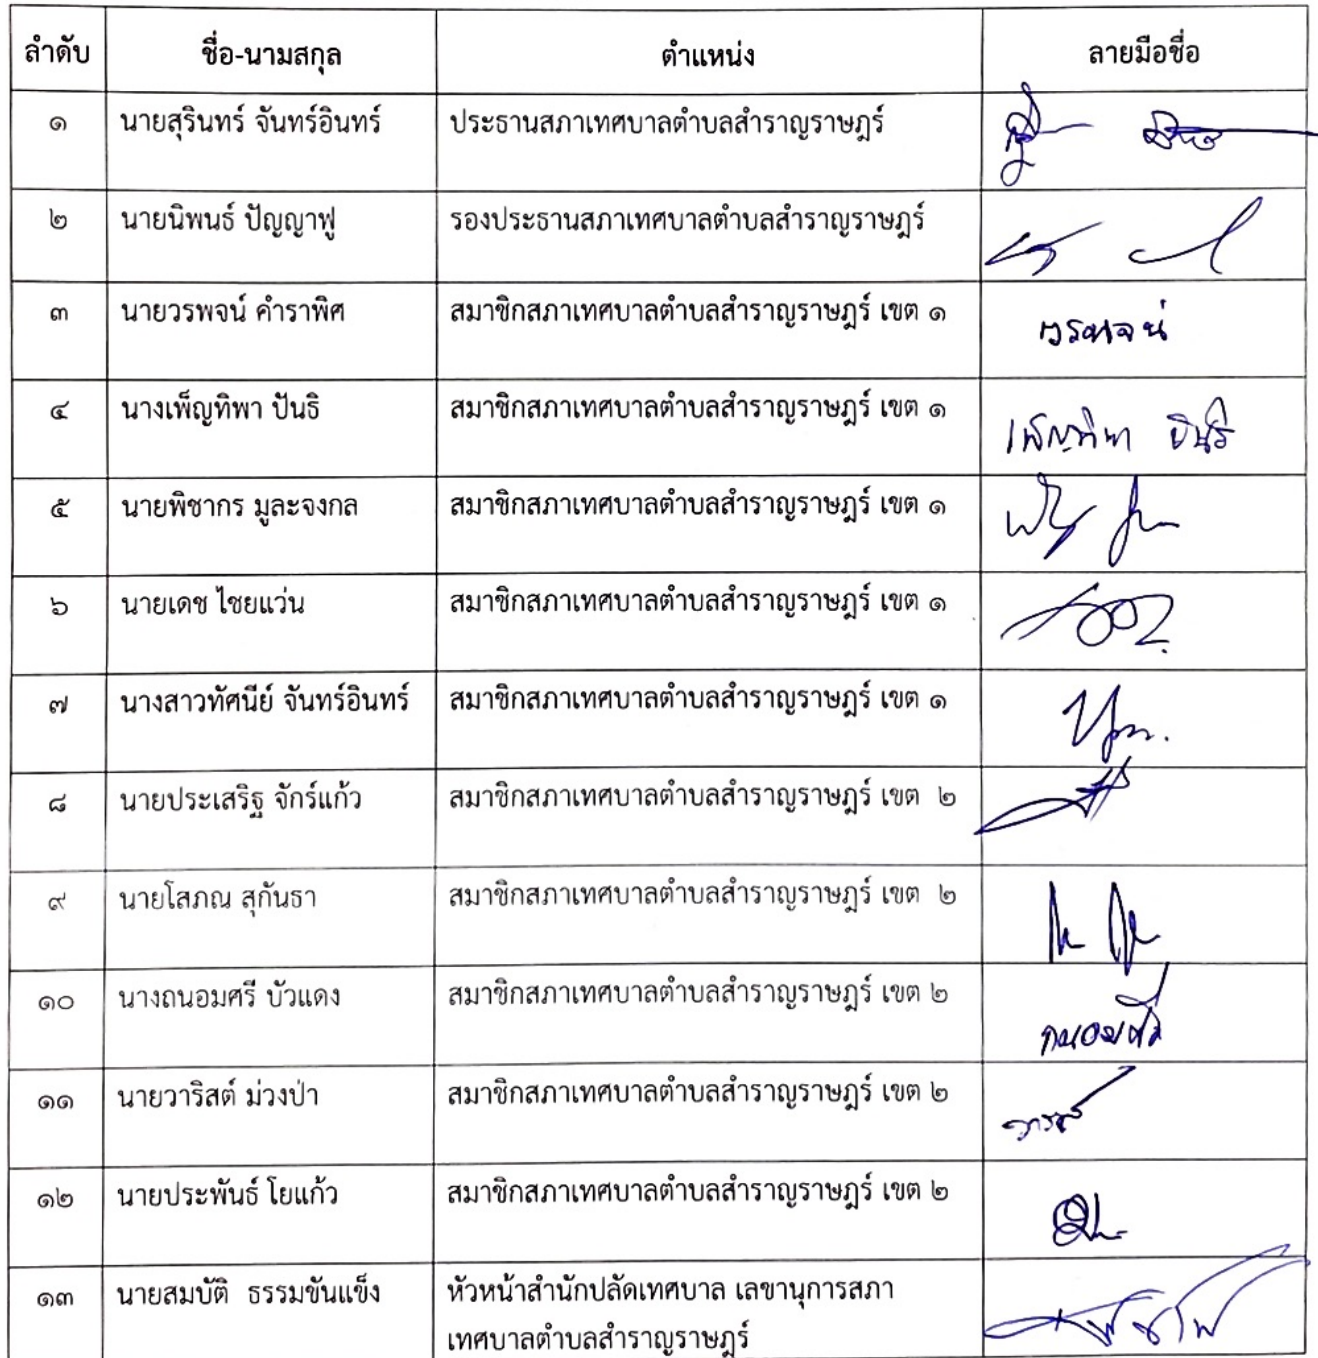 ลำดับ ชื่อ-นามสกุล ตำแหน่ง ลายมือชื่อ
๑ นายสุรินทร์ จันทร์อินทร์ ประธานสภาเทศบาลตำบลสำราญราษฎร์
๒ นายนิพนธ์ ปัญญาฟู รองประธานสภาเทศบาลตำบลสำราญราษฎร์
๓ นายวรพจน์ คำราพิศ สมาชิกสภาเทศบาลตำบลสำราญราษฎร์ เขต ๑ วรพจน์
๔ นางเพ็ญทิพา ปันธิ สมาชิกสภาเทศบาลตำบลสำราญราษฎร์ เขต ๑ เพ็ญทิพา ปันธิ
๕ นายพิชากร มูละจงกล สมาชิกสภาเทศบาลตำบลสำราญราษฎร์ เขต ๑
๖ นายเดช ไชยแว่น สมาชิกสภาเทศบาลตำบลสำราญราษฎร์ เขต ๑
๗ นางสาวทัศนีย์ จันทร์อินทร์ สมาชิกสภาเทศบาลตำบลสำราญราษฎร์ เขต ๑
๘ นายประเสริฐ จักร์แก้ว สมาชิกสภาเทศบาลตำบลสำราญราษฎร์ เขต ๒
๙ นายโสภณ สุกันธา สมาชิกสภาเทศบาลตำบลสำราญราษฎร์ เขต ๒
๑๐ นางถนอมศรี บัวแดง สมาชิกสภาเทศบาลตำบลสำราญราษฎร์ เขต ๒ ถนอมศรี
๑๑ นายวาริสต์ ม่วงป่า สมาชิกสภาเทศบาลตำบลสำราญราษฎร์ เขต ๒
๑๒ นายประพันธ์ โยแก้ว สมาชิกสภาเทศบาลตำบลสำราญราษฎร์ เขต ๒
๑๓ นายสมบัติ ธรรมขันแข็ง หัวหน้าสำนักปลัดเทศบาล เลขานุการสภา
เทศบาลตำบลสำราญราษฎร์